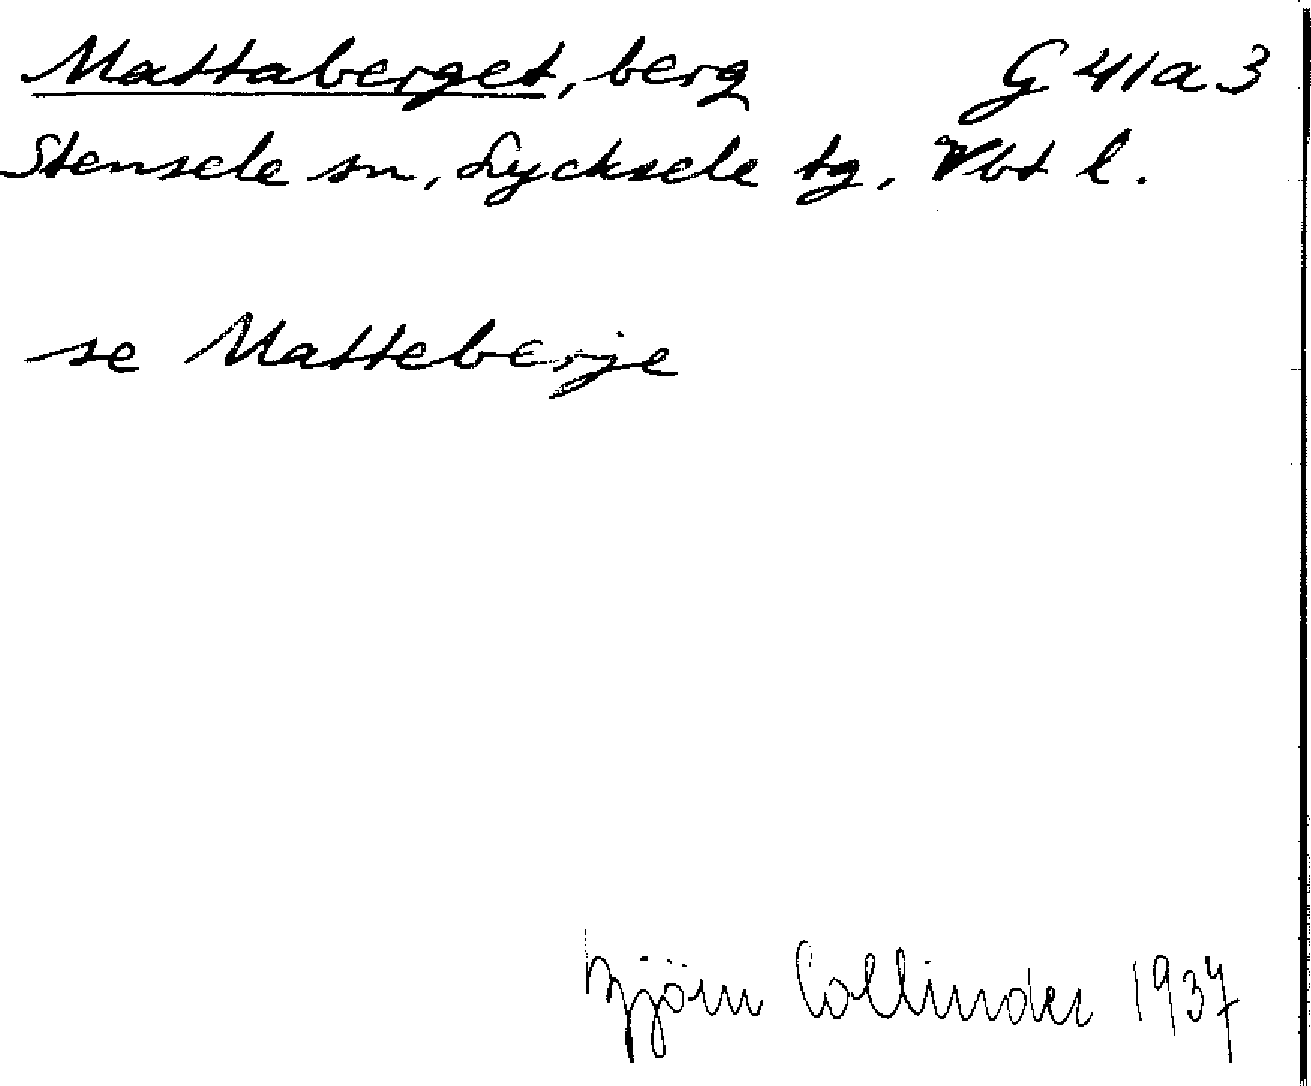 Mattaberget, berg G 41 a 3
Stensele sn, Lycksele tg, Vbt l.
se Matteberje
Björn Collinder 1937